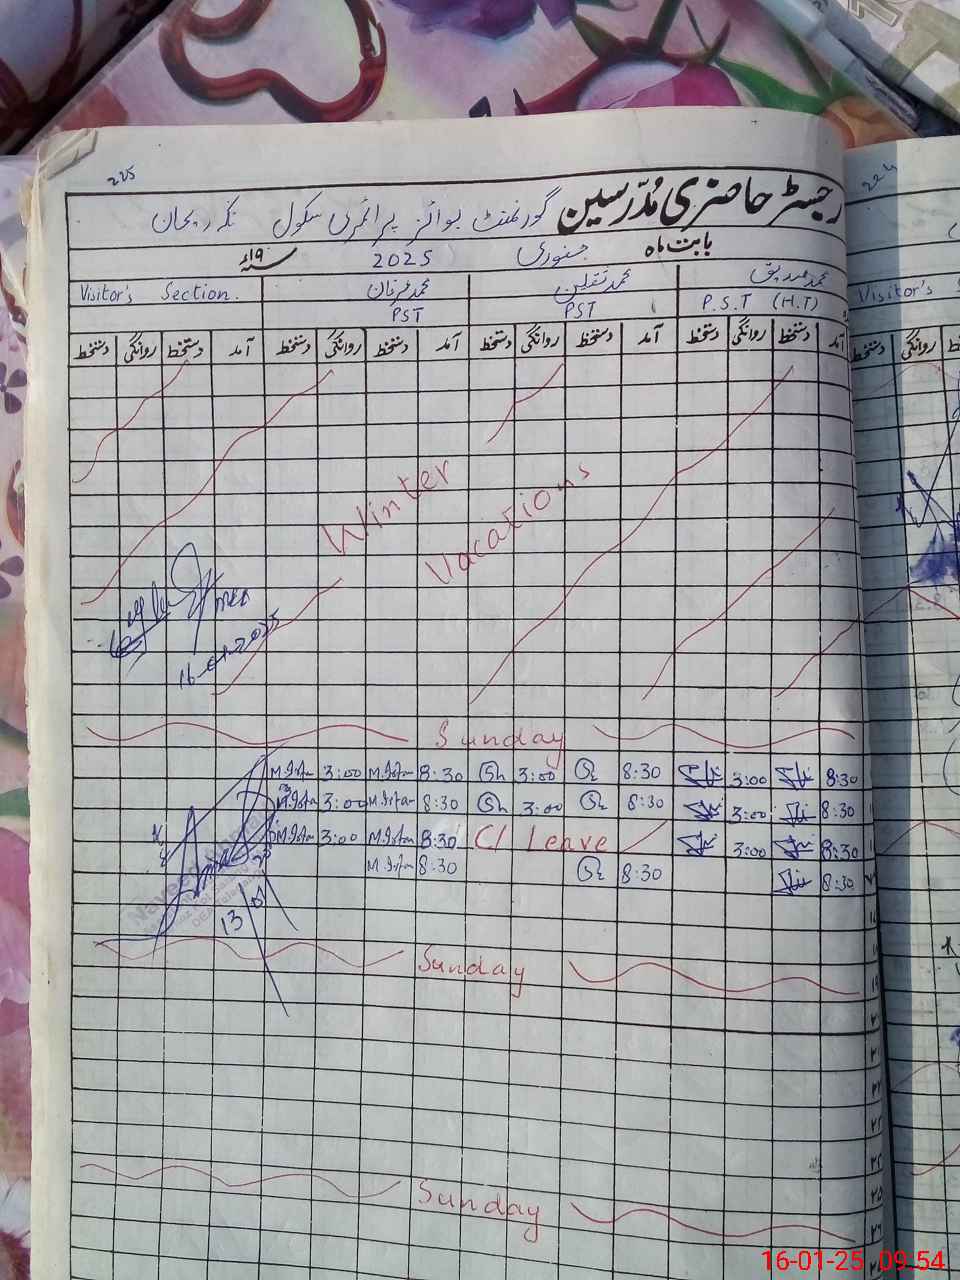 225
رجسٹر حاضری مُدرّسین گورنمنٹ بوائز پرائمری سکول نکہ ریحان
بابت ماہ جنوری 2025 سنہ ۱۹ء
محمد صدیق محمد ثقلین محمد عرفان Visitor's Section.
P.S.T (H.T) PST PST Visitor's
آمد دستخط روانگی دستخط آمد دستخط روانگی دستخط آمد دستخط روانگی دستخط آمد دستخط روانگی دستخط
روانگی دستخط
Winter
Vacations
16-01-2025
Sunday
M.Irfan 3:00 M.Irfan 8:30 Sh 3:00 8:30 3:00 8:30
M.Irfan 3:00 M.Irfan 8:30 Sh 3:00 8:30 3:00 8:30
M.Irfan 3:00 M.Irfan 8:30 C/ Leave 3:00 8:30
M.Irfan 8:30 8:30 8:30
13/01
Sunday
۱۹
۲۱
۲۲
۲۳
۲۴
۲۵
Sunday
۲۶
16-01-25 09:54